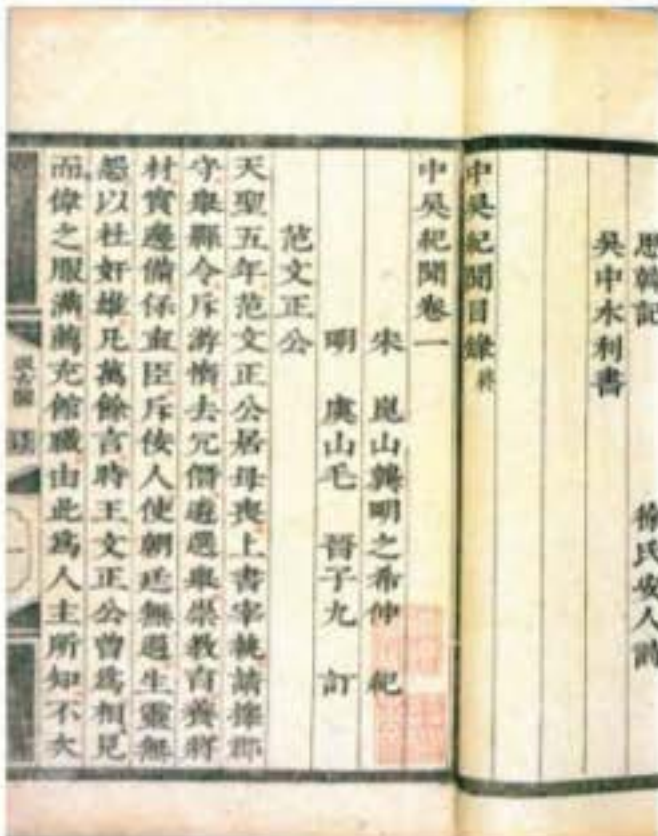 思韓記 徐氏安人詩
吳中水利書
中吳紀聞目錄 終
中吳紀聞卷一
宋 崑山龔明之希仲 紀
明 虞山毛 晉子九 訂
范文正公
天聖五年范文正公居母喪上書宰執請擇郡
守舉縣令斥游惰去冗僭遴選舉崇教育養將
材實邊備保直臣斥佞人使朝廷無過生靈無
怨以杜奸雄凡萬餘言時王文正公曾為相見
而偉之服滿薦充館職由此為人主所知不久
一